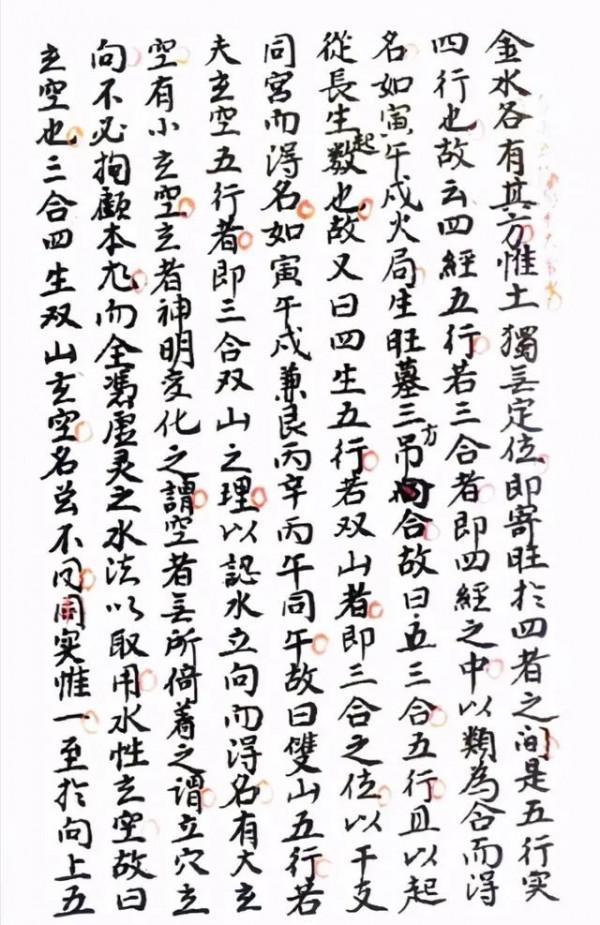 金水各有其方惟土獨无定位即寄旺於四者之间是五行实
四行也故云四經五行若三合者即四經之中以類為合而得
名如寅午戌火局生旺墓三方吊合故曰三合五行且以起
從長生起數也故又曰四生五行若双山者即三合之位以干支
同宮而得名如寅午戌兼艮丙辛丙午同午故曰雙山五行若
夫玄空五行者即三合双山之理以認水立向而得名有大玄
空有小玄空玄者神明变化之謂空者无所倚着之谓立穴立
向不必拘顧本龙而全憑虛灵之水法以取用水性玄空故曰
玄空也三合四生双山玄空名虽不同实惟一至於向上五